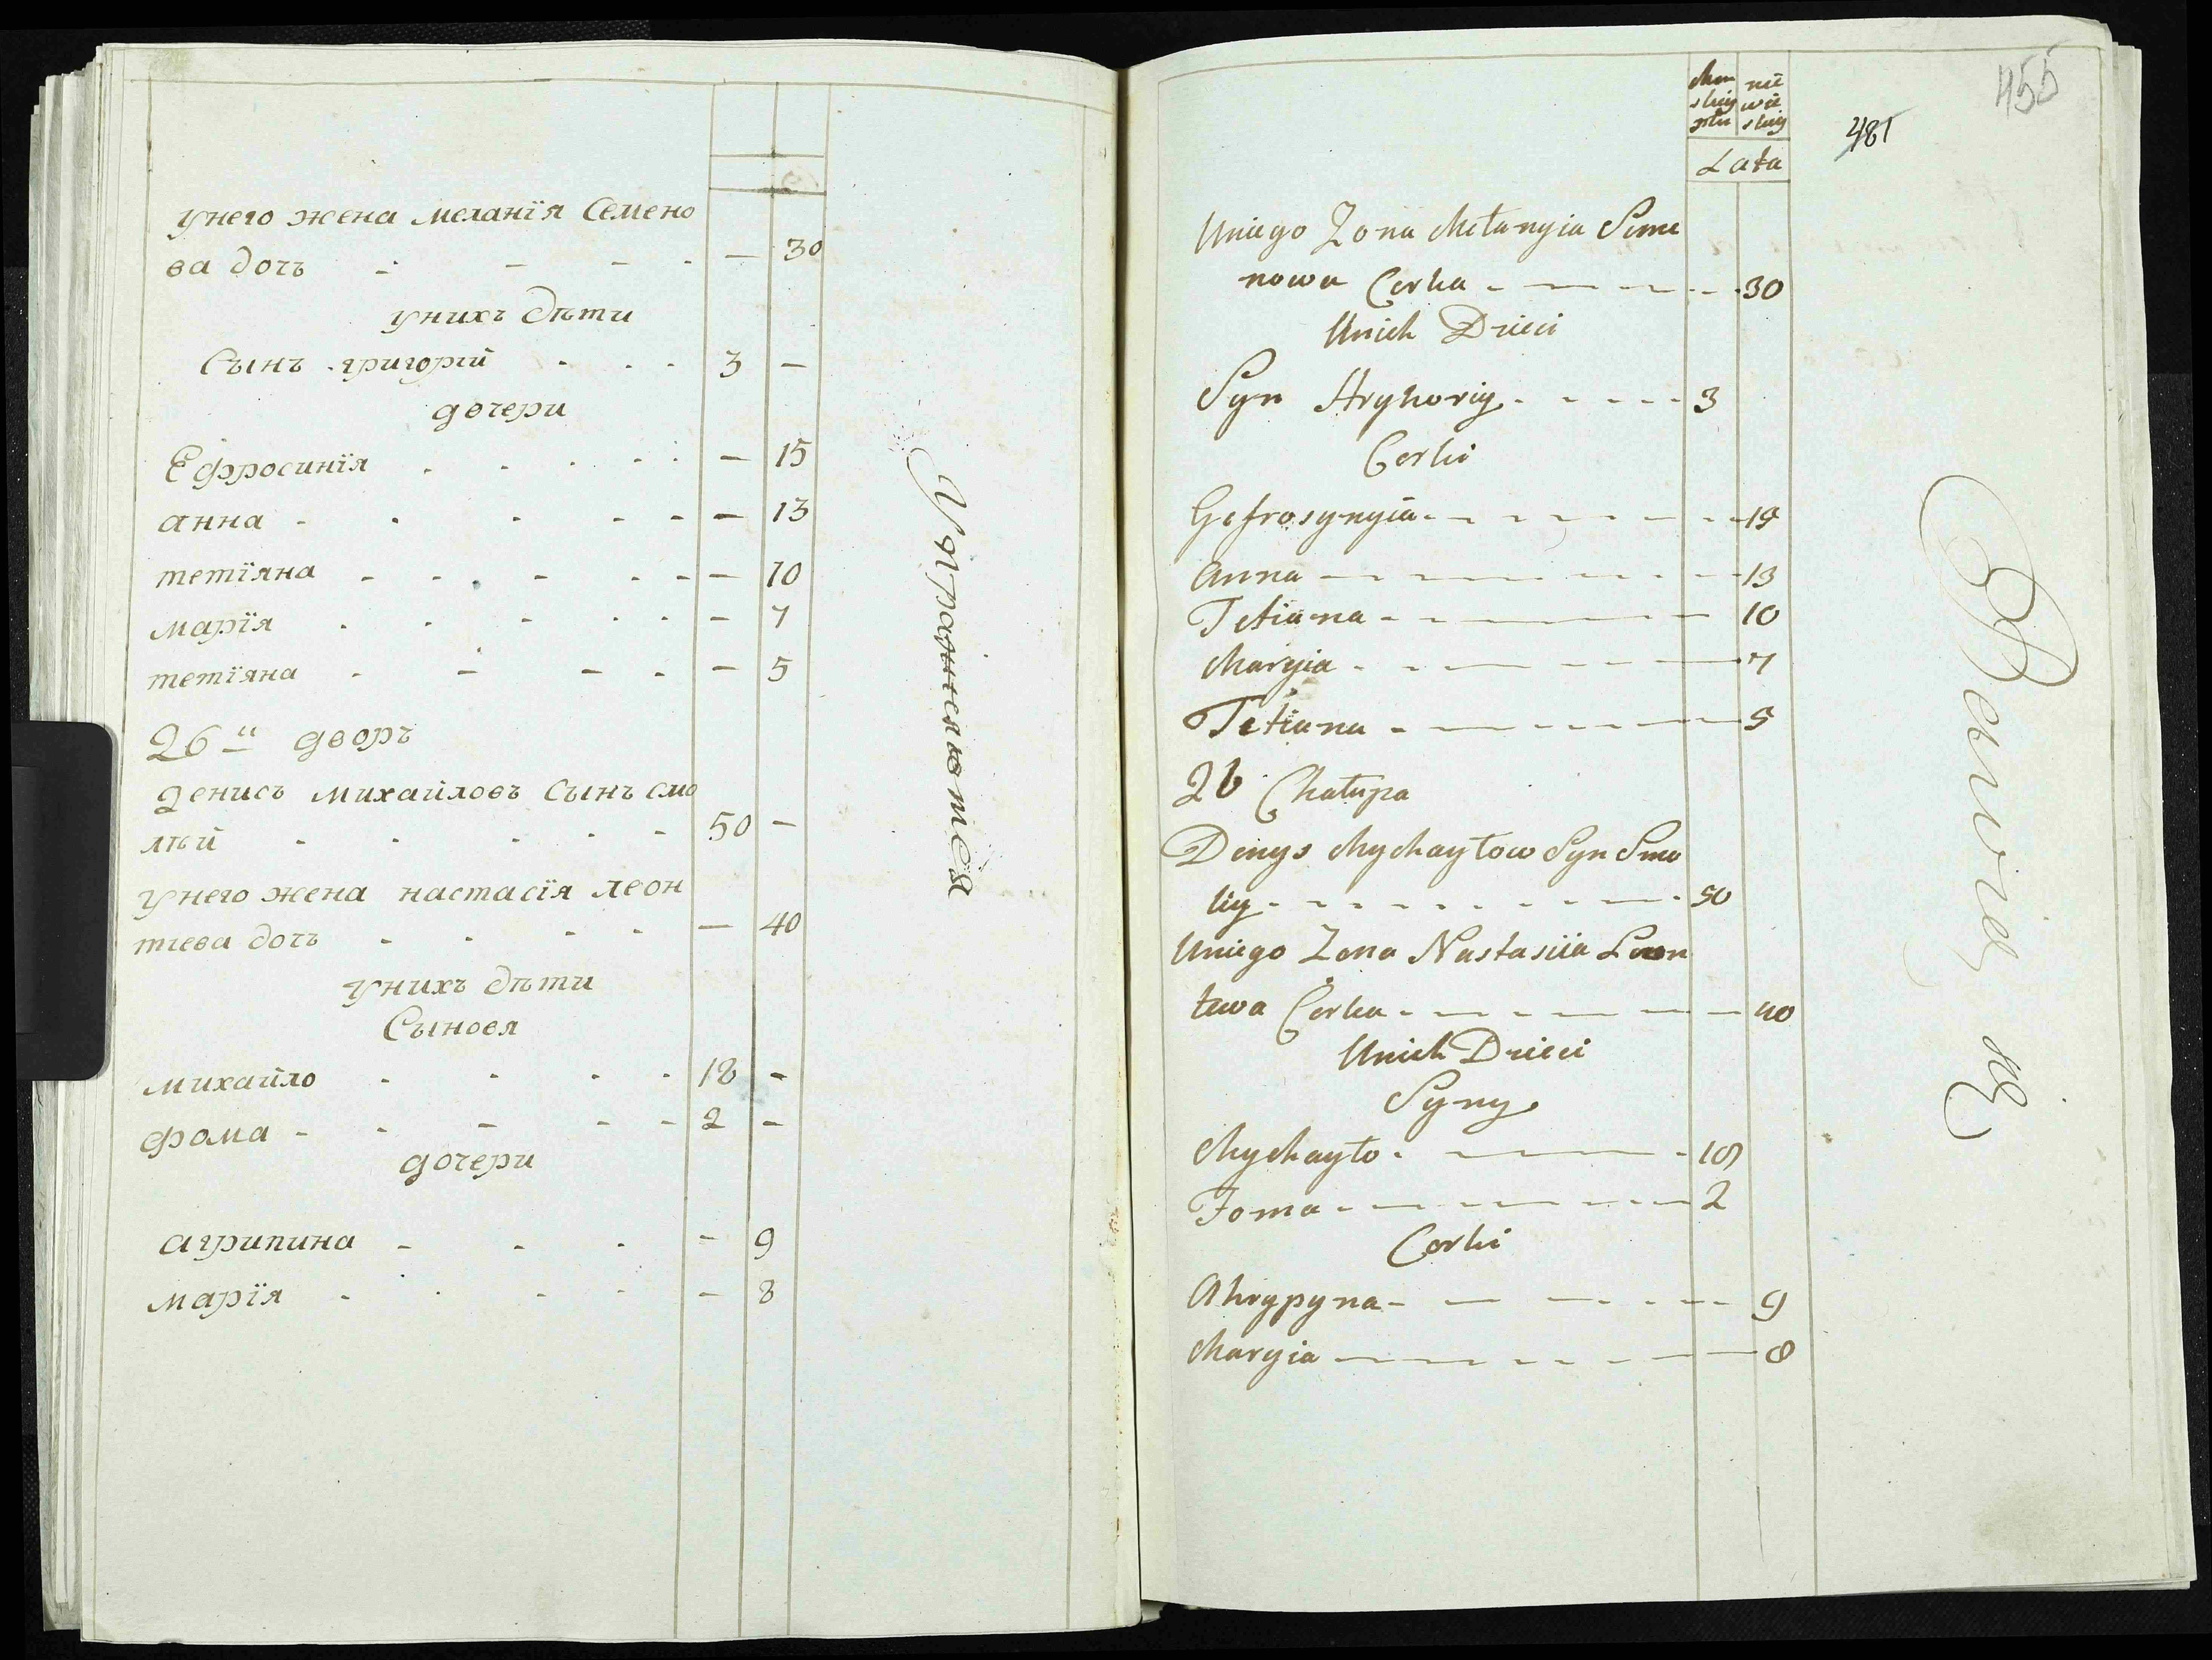 унего жена меланїя Семено
ва дочь - - - - - 30
унихъ дѣти
Сынъ григорїй - - - 3 -
дочери
Ефросинїя - - - - 15
анна - - - - - 13
тетїяна - - - - - 10
марїя - - - - - 7
тетїяна - - - - - 5
26й дворъ
Денисъ михайловъ Сынъ смо
лѣй - - - - - 50 -
унего жена настасїя леон
тиева дочь - - - - - 40
унихъ дѣти
Сыновя
михайло - - - - 18 -
фома - - - - - 2 -
дочери
агрипина - - - - 9
марїя - - - - - 8
Упражняются
455
481
Lata
Uniego Zona Mełanyia Seme
nowa Corka - - - - - 30
Unich Dzieci
Syn Hryhoriy - - - - - 3
Corki
Gefrosynyia - - - - - 15
Anna - - - - - 13
Tetiana - - - - - 10
Maryia - - - - - 7
Tetiana - - - - - 5
26 Chałupa
Denys Mychayłow Syn Smo
liy - - - - - 50
Uniego Zona Nastasiia Leon
tewa Corka - - - - - 40
Unich Dzieci
Syny
Mychayło - - - - 18
Foma - - - - - 2
Corki
Ahrypyna - - - - - 9
Maryia - - - - - 8